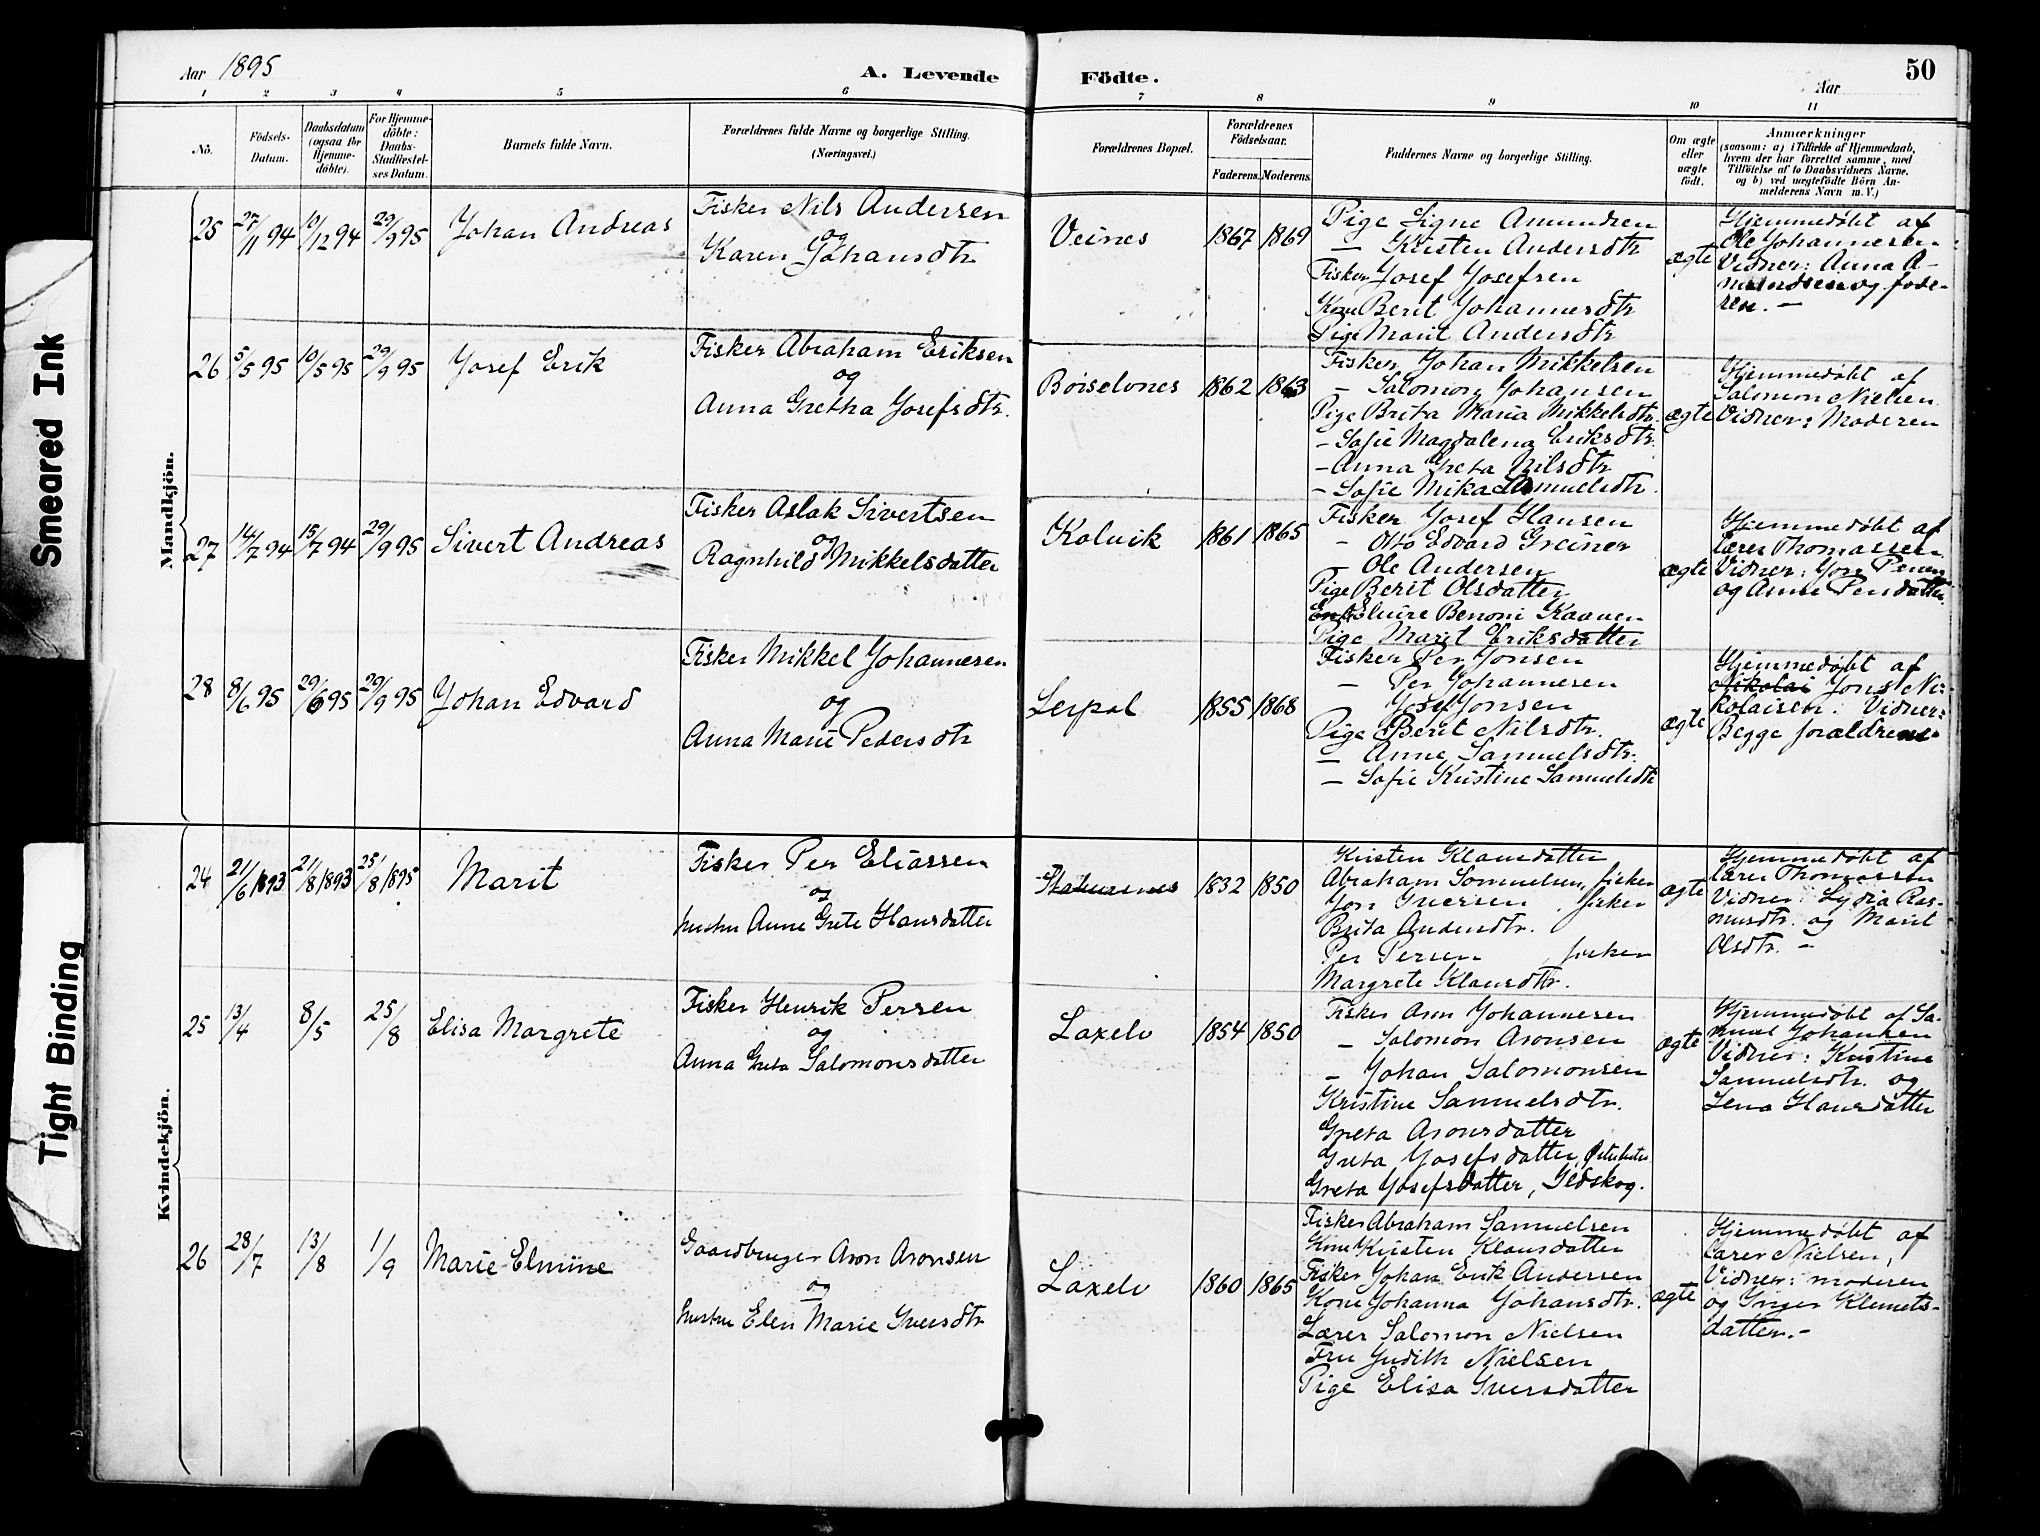 Smeared Ink
Tight Binding
Aar 1895
A. Levende Födte.
Aar
50
1 2 3 4 5 6 7 8 9 10 11
No.
Födsels-Datum.
Daabsdatum (ogsaa for Hjemme-döbte).
For Hjemme-döbte: Daabs-Stadfæstel-ses Datum.
Barnets fulde Navn.
Forældrenes fulde Navne og borgerlige Stilling. (Næringsvei.)
Forældrenes Bopæl.
Forældrenes Födselsaar.
Faderens. Moderens.
Faddernes Navne og borgerlige Stilling.
Om ægte eller uægte født.
Anmærkninger
(saasom: a) i Tilfælde af Hjemmedaab,
hvem der har forrettet samme, med
Tilföielse af to Daabsvidners Navne.
og b) ved uægtefödte Börn An-
melderens Navn m.V.)
Mandkjön.
25 27/11 94 10/12 94 29/9 95 Johan Andreas
Fisker Nils Andersen
og
Karen Johansdtr
Veines 1867 1869
Pige Signe Amundsen
— Kristen Andersdtr
Fisker Josef Josefsen
Kone Berit Johannesdtr
Pige Marit Andersdtr
ægte
Hjemmedøbt af
Ole Johannesen
Vidner: Anna A-
mundsen og fade-
ren. —
26 5/5 95 10/5 95 29/9 95 Josef Erik
Fisker Abraham Eriksen
og
Anna Gretha Josefsdtr.
Børselvnes 1862 1863
Fisker Johan Mikkelsen
— Salomon Johansen
Pige Brita Maria Mikkelsdtr.
— Sofie Magdalena Eriksdtr.
— Anna Greta Nilsdtr
— Sofie Mika Samuelsdtr.
ægte
Hjemmedøbt af
Salomon Nielsen
Vidner: Moderen
27 14/7 94 15/7 94 29/9 95 Sivert Andreas
Fisker Aslak Sivertsen
og
Ragnhild Mikkelsdatter
Kolvik 1861 1865
Fisker Josef Hansen
— Otto Edvard Greiner
— Ole Andersen
Pige Berit Olsdatter
Enke Elvire Benoni Kaaven
Pige Marit Eriksdatter
ægte
Hjemmedøbt af
lærer Thomassen
Vidner: Jon Persen
og Anne Persdatter.
28 8/6 95 29/6 95 29/9 95 Johan Edvard
Fisker Mikkel Johannesen
og
Anna Marie Pedersdtr
Lerpol 1855 1868
Fisker Per Jonsen
— Per Johannesen
Josef Jonsen
Pige Berit Nilsdtr.
— Anne Samuelsdtr.
— Sofie Kristine Samuelsdtr
ægte
Hjemmedøbt af
Nikolai Jons Ni-
kolaisen: Vidner:
Begge forældrene.
Kvindekjön.
24 21/6 1893 21/8 1893 25/8 1895 Marit
Fisker Per Eliassen
og
hustru Anne Grete Hansdatter
1832 1850
Kristen Klausdatter
Abraham Samuelsen, fisker
Jon Iversen, fisker
Brita Andersdtr.
Per Persen, fisker
Margrete Klausdtr.
ægte
Hjemmedøbt af
lærer Thomassen
Vidner: Lydia Ras-
musdtr. og Marit
Olsdtr. —
25 13/4 8/5 25/8 Elisa Margrete
Fisker Henrik Persen
og
Anna Greta Salomonsdatter
Laxelv 1854 1850
Fisker Aron Johannesen
— Salomon Aronsen
— Johan Salomonsen
Kristine Samuelsdtr.
Greta Aronsdatter
Greta Josefsdatter,
Greta Josefsdatter, Ildskog.
ægte
Hjemmedøbt af Sa-
muel Johansen
Vidner: Kristine
Samuelsdtr. og
Lena Hansdatter
26 28/7 13/8 1/9 Marie Elmine
Gaardbruger Aron Aronsen
og
hustru Elen Marie Iversdtr
Laxelv 1860 1865
Fisker Abraham Samuelsen
Kone Kristen Klausdatter
Fisker Johan Erik Andersen
Kone Johanna Johansdtr.
Lærer Salomon Nielsen
Fru Judith Nielsen
Pige Elisa Iversdatter
ægte
Hjemmedøbt af
lærer Nielsen,
Vidner: moderen
og Inger Klemets-
datter. —